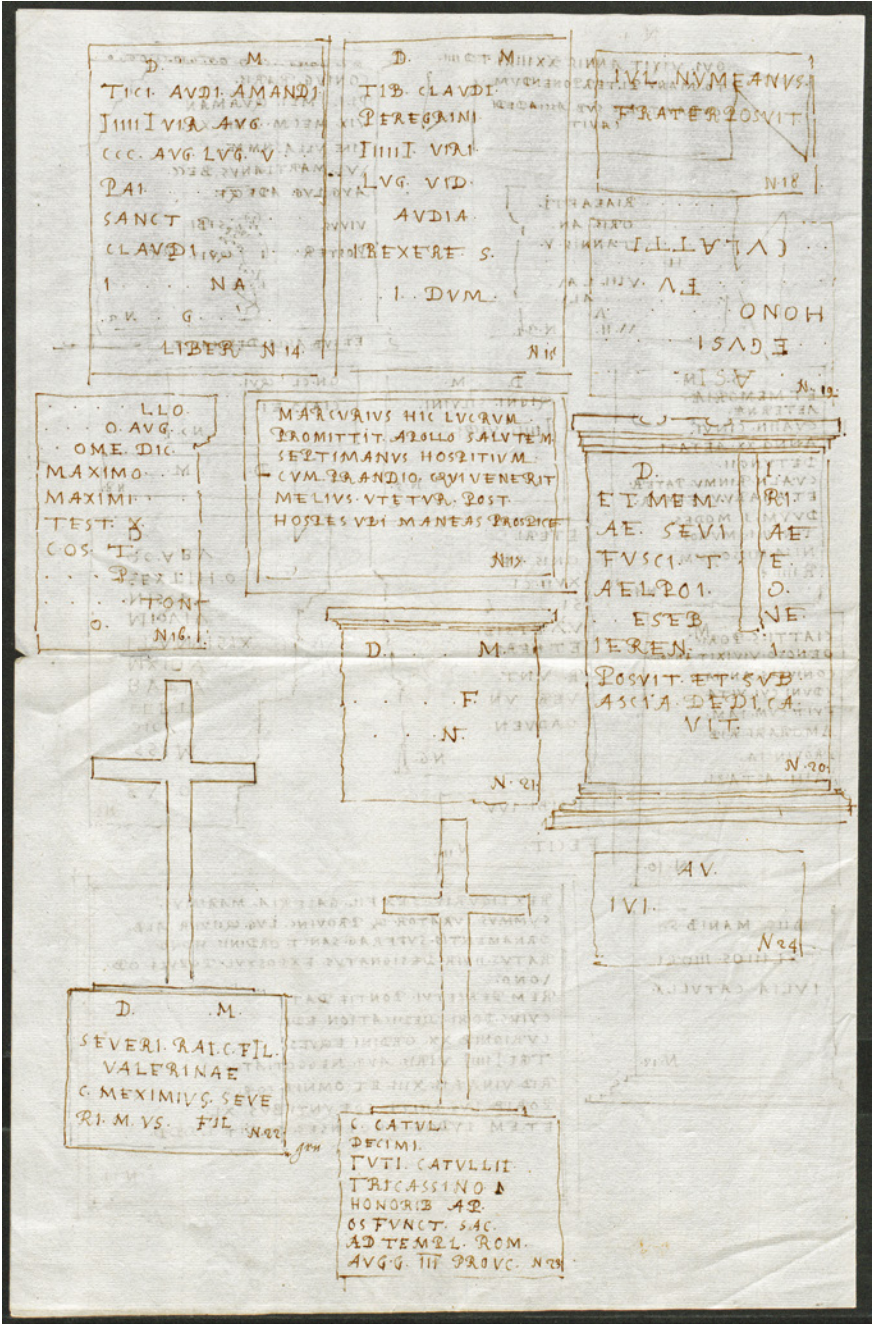 D. M
TICI. AVDI. AMANDI
IIIIII VIR AVG
CCC. AVG. LVG. V
PAI.
SANCT
CLAVDI
I NA
G
LIBER N 14.
D. M
TIB. CLAVDI.
PEREGRINI
IIIIII. VIRI
LVG. VID
AVDIA
IREXERE S.
I. DVM.
N 15
IVL. NVMEANVS.
FRATER POSVIT
N. 18
CVLATTI
FV
HONO
EGVSI
ASIM
N. 19.
LLO.
O. AVG.
OME. DIC.
MAXIMO
MAXIMI
TEST. X.
COS. T. D
P.
TON
O. N 16.
MARCURIUS HIC LUCRUM
PROMITTIT. APOLLO SALUTEM
SEPTIMANUS HOSPITIVM
CVM. PRANDIO. QVI VENERIT
MELIVS. VTETVR. POST
HOSPES VBI MANEAS PROSPICE
N 17
D. I.
ET MEM RI
AE. SEVI AE
FVSCI. T. E
AELPOI. O.
ESEB NE
IEREN. I
POSVIT. ET SVB
ASCIA. DEDICA
VIT.
N. 20.
D. M.
F.
N.
N. 21
D. M.
SEVERI. RAI. C. FIL.
VALERINAE
C. MEXIMIVS. SEVE
RI. M. VS. FIL N. 22
C. CATVL
DECIMI.
TVTI. CATVLLII
TRICASSINO
HONORIB AP.
OS FVNCT. SAC.
AD TEMPL. ROM.
AVG.G. III PROVC. N 23
AV.
IVI.
N 24